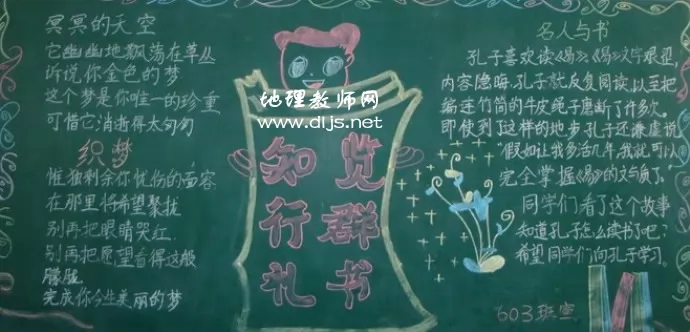 冥冥的天空
它幽幽地飘荡在草丛
诉说你金色的梦
这个梦是你唯一的珍重
可惜它消逝得太匆匆
织梦
惟独剩余你忧伤的面容
在那里将希望聚拢
别再把眼睛哭红
别再把愿望看得这般
朦胧
完成你今生美丽的梦
地理教师网
www.dljs.net
知行礼
览群书
名人与书
孔子喜欢读《易》,《易》文字艰涩
内容隐晦,孔子就反复阅读,以至把
编连竹简的牛皮绳子磨断了许多次。
即使到了这样的地步,孔子还谦虚说
"假如让我多活几年,我就可以
完全掌握《易》的文与质了。"
同学们看了这个故事
知道孔子怎么读书了吧?
希望同学们向孔子学习。
603班宣